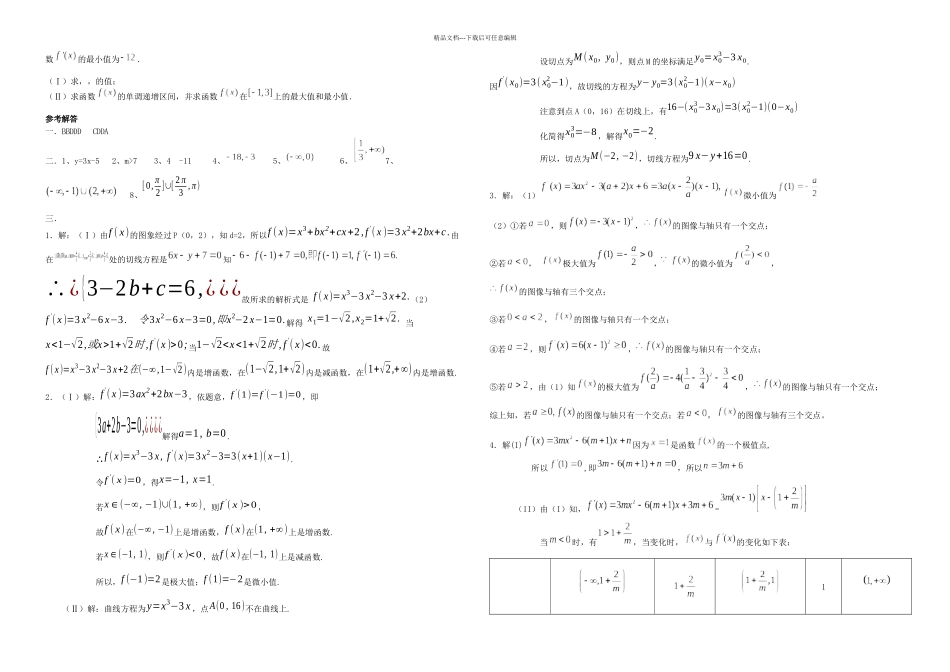 精品文档---下载后可任意编辑
数 f'(x) 的最小值为 -12 .
(Ⅰ)求，，的值；
(Ⅱ)求函数 f(x) 的单调递增区间，并求函数 f(x) 在 [-1,3] 上的最大值和最小值.
参考解答
一．BBDDD CDDA
二．1、y=3x-5 2、m>7 3、4 -11 4、-18,-3 5、(-∞,0) 6、[1/3,+∞) 7、
(-∞,-1)∪(2,+∞) 8、[0,π/2]∪[2π/3,π)
三.
1．解：(Ⅰ)由f(x)的图象经过 P（0，2），知 d=2，所以f(x)=x³+bx²+cx+2,f'(x)=3x²+2bx+c.由
在处的切线方程是 6x-y+7=0 知 -6-f(-1)+7=0,即f(-1)=1,f'(-1)=6.
∴¿{3-2b+c=6,¿¿¿故所求的解析式是 f(x)=x³-3x²-3x+2.（2）
f'(x)=3x²-6x-3. 令3x²-6x-3=0,即x²-2x-1=0.解得 x₁=1-√2,x₂=1+√2. 当
x<1-√2,或x>1+√2时,f'(x)>0;当1-√2<x<1+√2时,f'(x)<0.故
f(x)=x³-3x²-3x+2在(-∞,1-√2)内是增函数，在(1-√2,1+√2)内是减函数，在(1+√2,+∞)内是增函数.
2．(Ⅰ)解：f'(x)=3ax²+2bx-3，依题意，f'(1)=f'(-1)=0，即
{3a+2b-3=0,¿¿¿¿解得a=1,b=0.
∴f(x)=x³-3x,f'(x)=3x²-3=3(x+1)(x-1).
令f'(x)=0，得x=-1,x=1.
若x∈(-∞,-1)∪(1,+∞)，则f'(x)>0，
故f(x)在(-∞,-1)上是增函数，f(x)在(1,+∞)上是增函数.
若x∈(-1,1)，则f'(x)<0，故f(x)在(-1,1)上是减函数.
所以，f(-1)=2是极大值；f(1)=-2是微小值.
(Ⅱ)解：曲线方程为y=x³-3x，点A(0,16)不在曲线上.
设切点为M(x₀,y₀)，则点 M 的坐标满足y₀=x₀³-3x₀.
因f'(x₀)=3(x₀²-1)，故切线的方程为y-y₀=3(x₀²-1)(x-x₀)
注意到点 A（0，16）在切线上，有16-(x₀³-3x₀)=3(x₀²-1)(0-x₀)
化简得x₀³=-8，解得x₀=-2.
所以，切点为M(-2,-2)，切线方程为9x-y+16=0.
3.解：(1) f'(x)=3ax²-3(a+2)x+6=3a(x-2/a)(x-1), f(x)微小值为 f(1)=-a/2
（2）①若 a=0，则 f(x)=-3(x-1)²，∴f(x)的图像与轴只有一个交点；
②若 a<0，f(x)极大值为 f(1)=-a/2>0，∵f(x)的微小值为 f(2/a)<0，
∴f(x)的图像与轴有三个交点；
③若 0<a<2，f(x)的图像与轴只有一个交点；
④若 a=2，则 f'(x)=6(x-1)²≥0，∴f(x)的图像与轴只有一个交点；
⑤若 a>2，由（1）知 f(x)的极大值为 f(2/a)=-4(1/a-3/4)²-3/4<0，∴f(x)的图像与轴只有一个交点；
综上知，若 a≥0,f(x)的图像与轴只有一个交点；若 a<0，f(x)的图像与轴有三个交点。
4．解(I) f'(x)=3mx²-6(m+1)x+n因为 x=1 是函数 f(x) 的一个极值点,
所以 f'(1)=0，即3m-6(m+1)+n=0，所以 n=3m+6
(II) 由（I）知，f'(x)=3mx²-6(m+1)x+3m+6=3m(x-1)[x-(1+2/m)]
当 m<0 时，有 1>1+2/m，当变化时，f(x) 与 f'(x) 的变化如下表；
(-∞,1+2/m) 1+2/m (1+2/m,1) 1 (1,+∞)